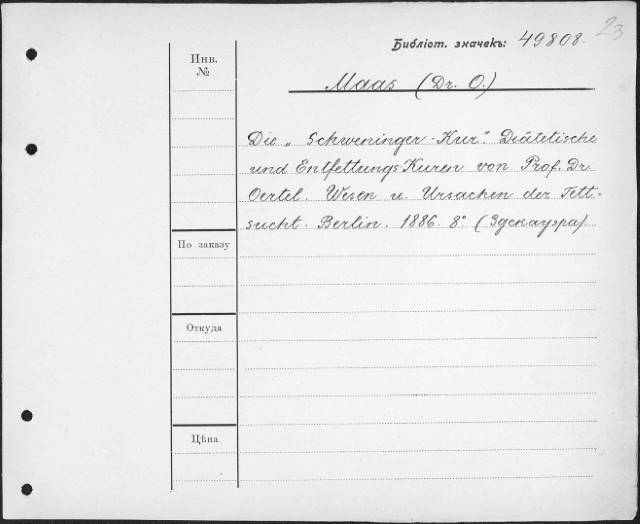 23
Библіот. значекъ: 49808.
Инв.
№
Maas (Dr. O.)
Die „Schweninger-Kur". Diätetische
und Entfettungs-Kuren von Prof. Dr.
Oertel. Wesen u. Ursachen der Fett-
sucht. Berlin. 1886. 8° (Здекауэра)
По заказу
Откуда
Цѣна